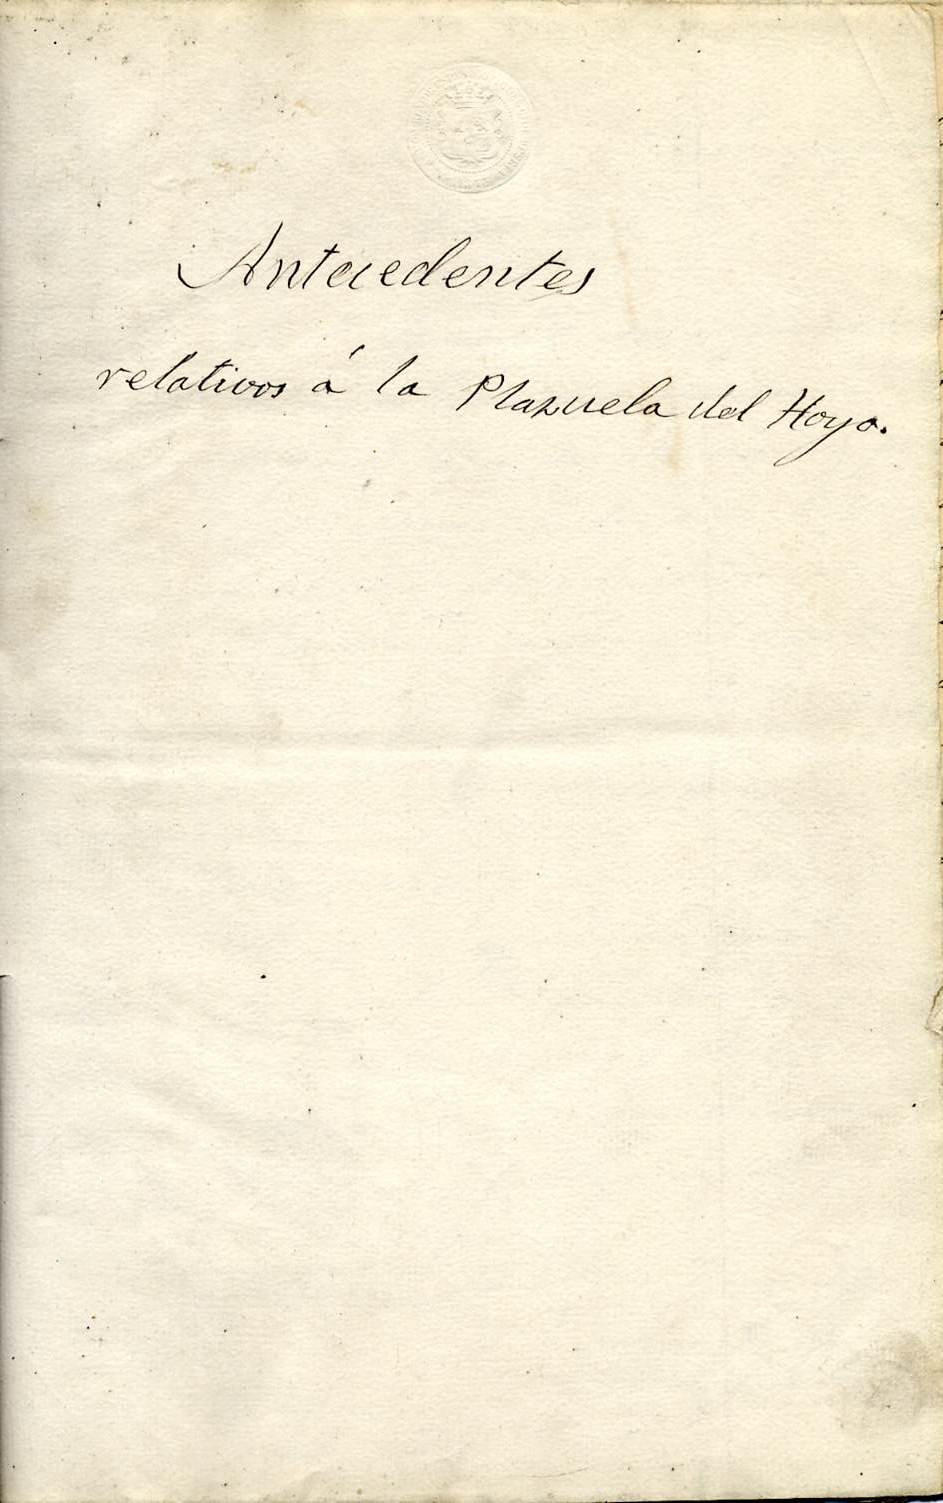 Antecedentes
relativos á la Plazuela del Hoyo.